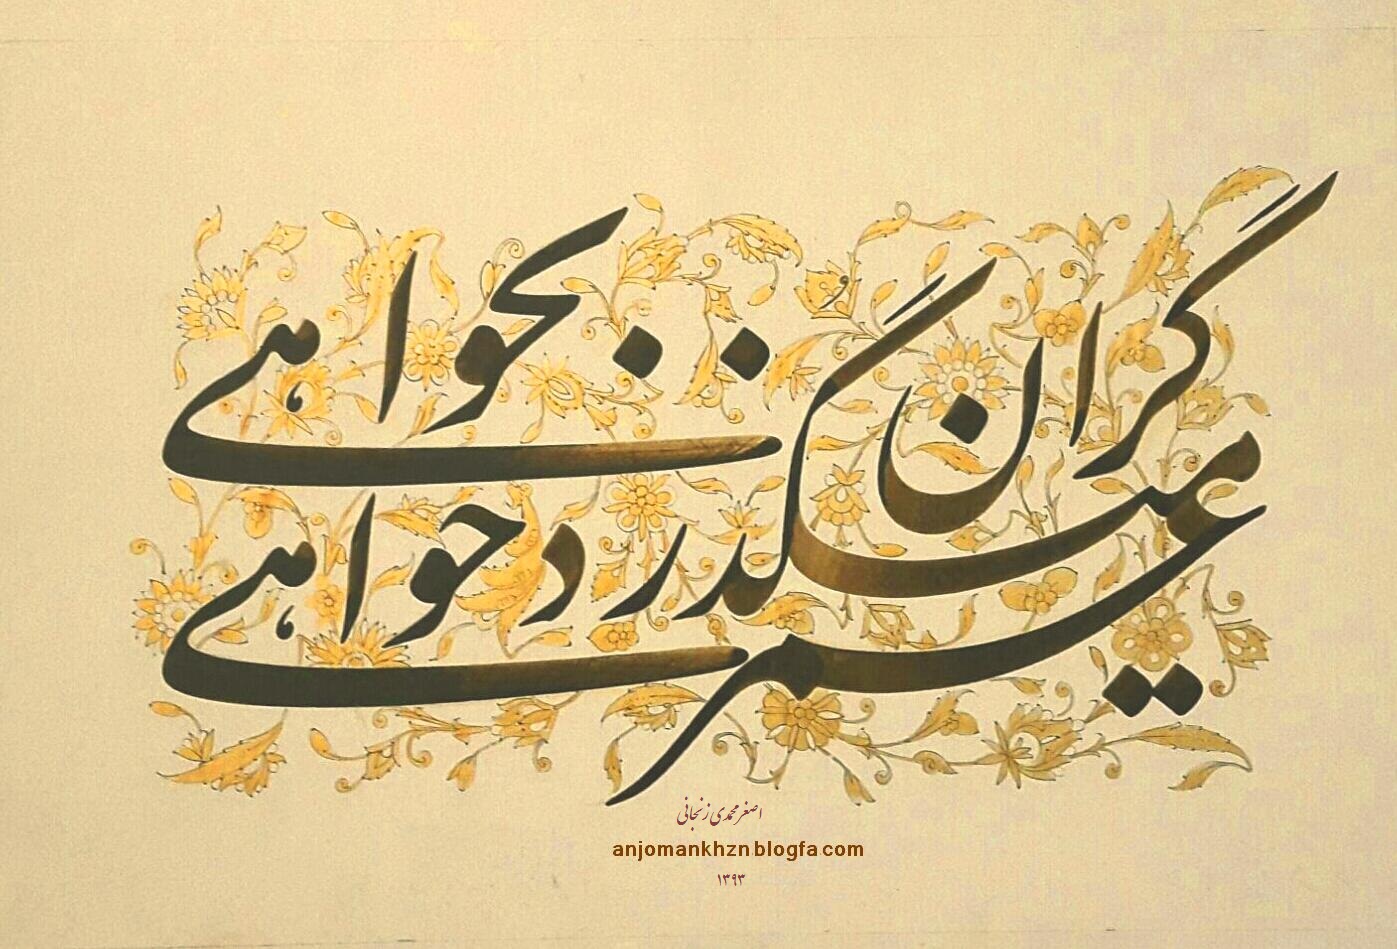 عمر گران میگذرد خواهی نخواهی
اصغر محمدی زنجانی
anjomankhzn.blogfa.com
۱۳۹۳